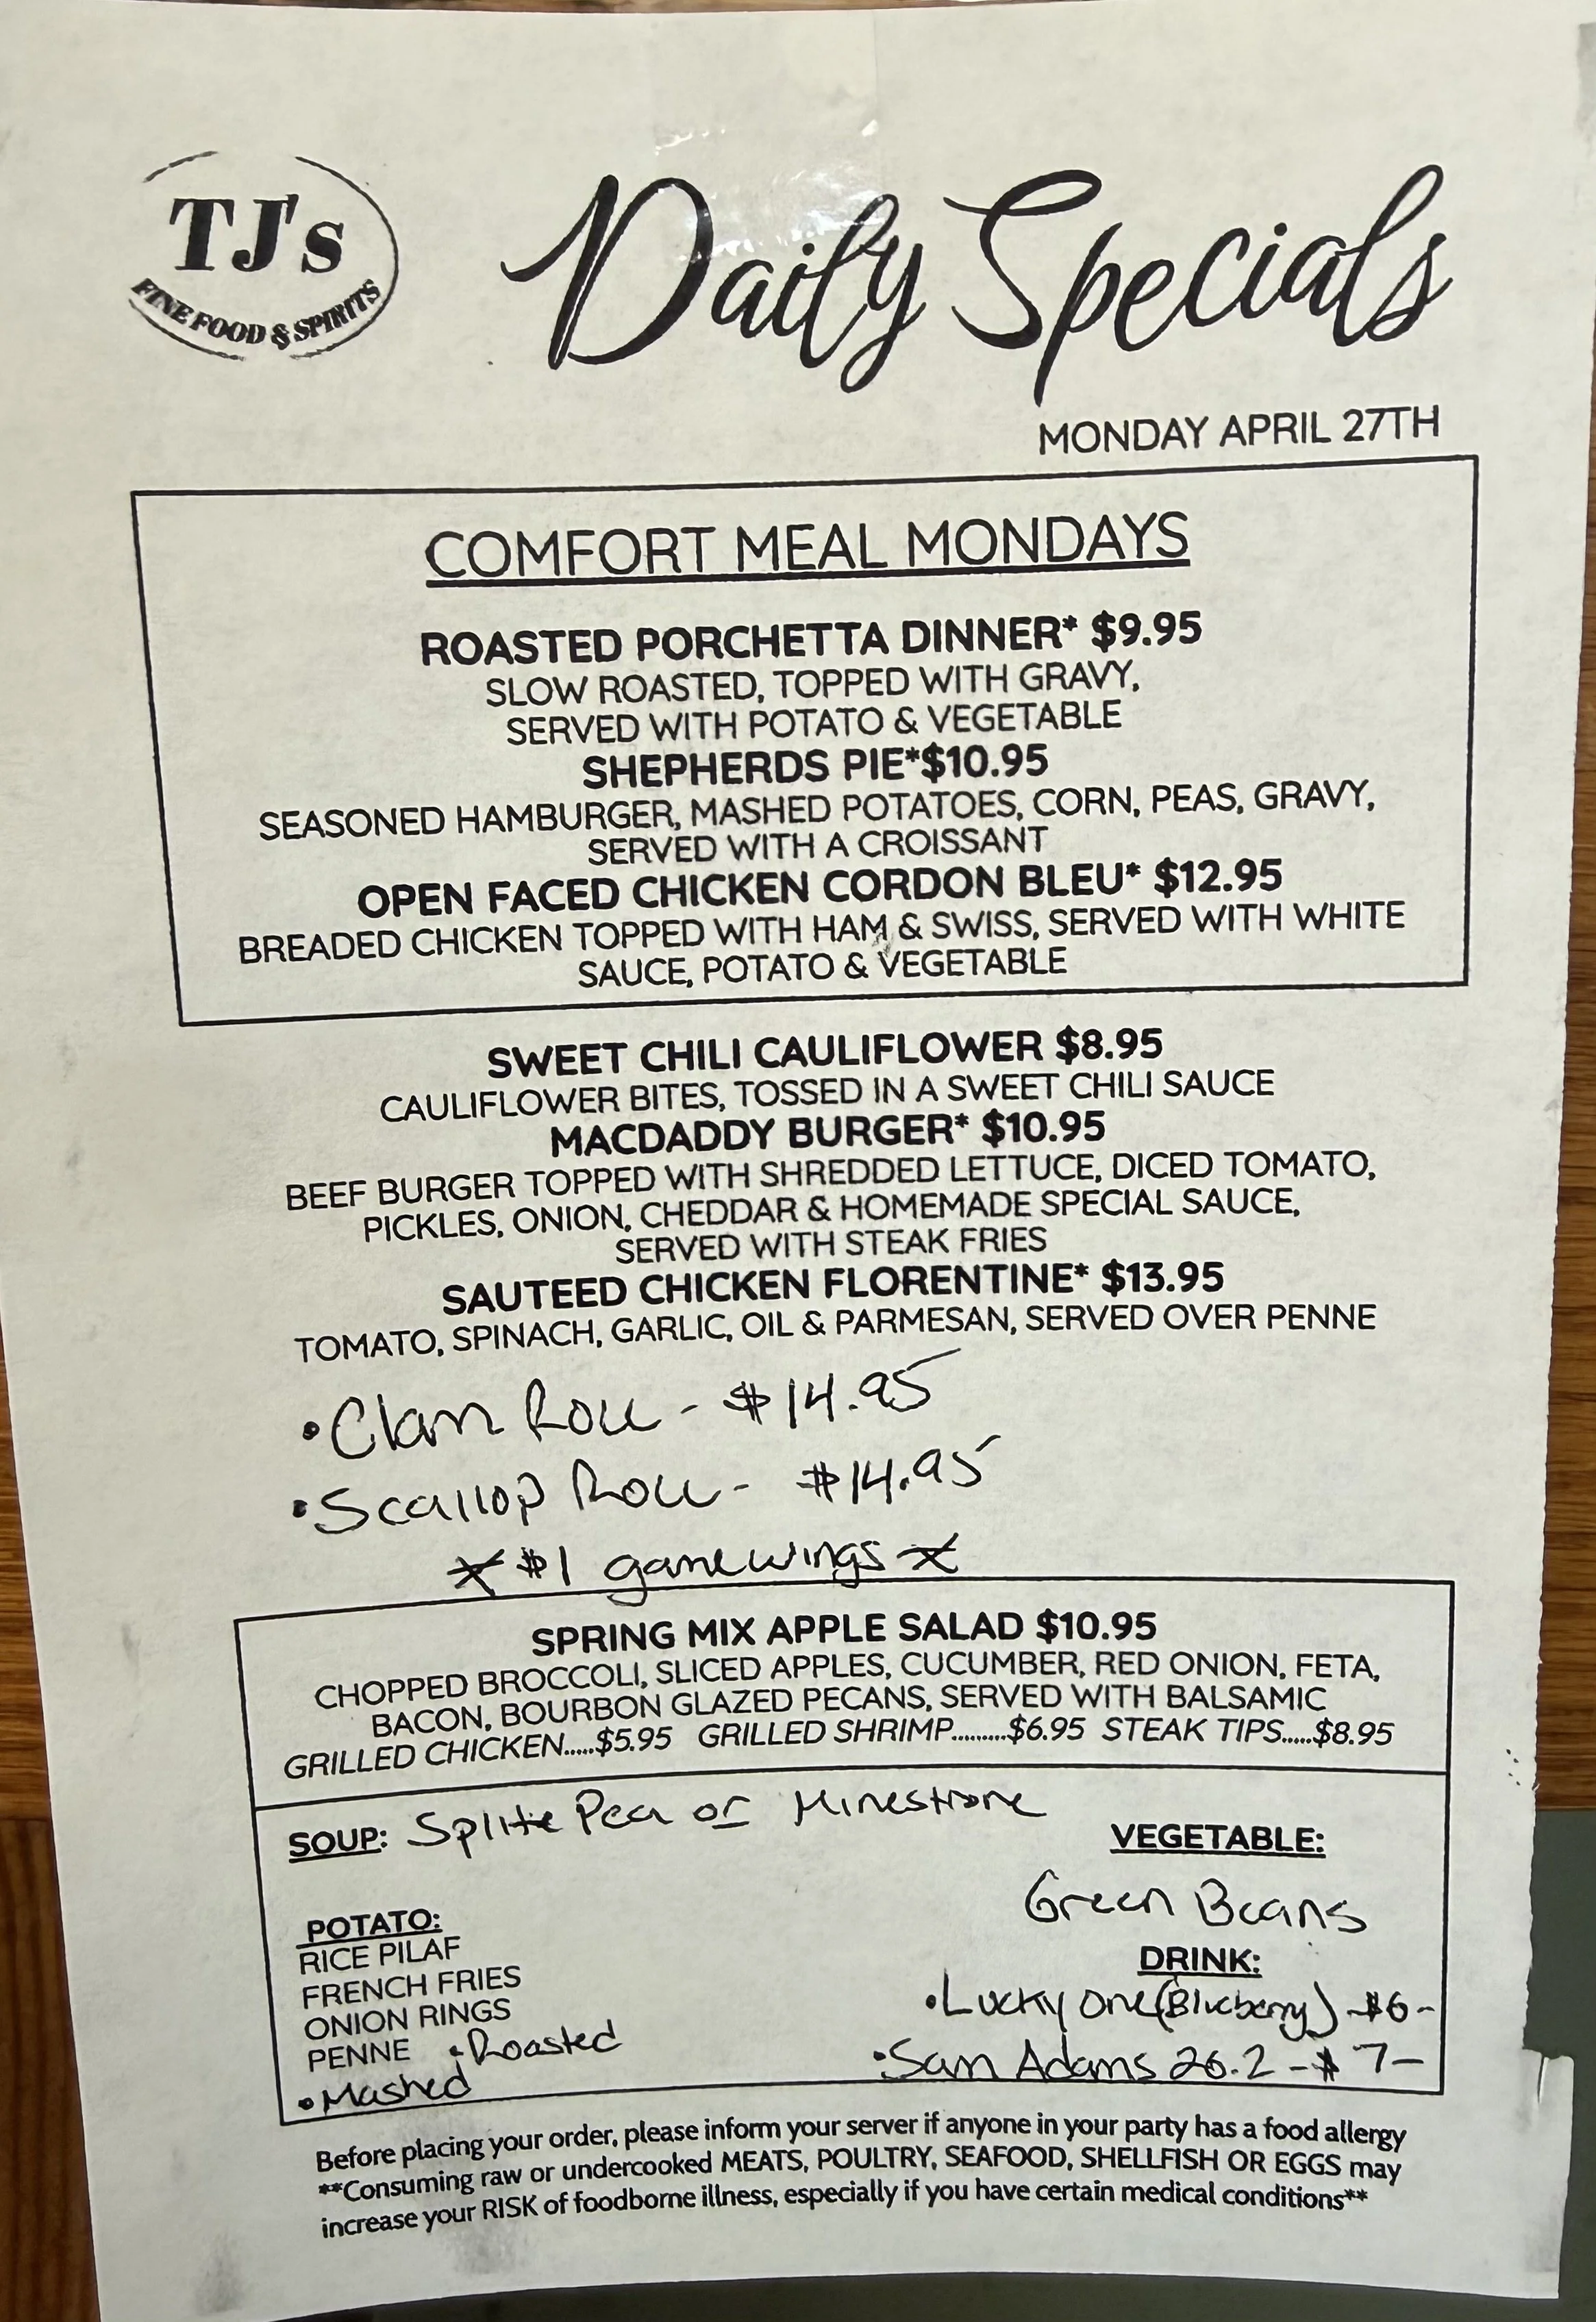 TJ's
FINE FOOD & SPIRITS
Daily Specials
MONDAY APRIL 27TH
COMFORT MEAL MONDAYS
ROASTED PORCHETTA DINNER* $9.95
SLOW ROASTED, TOPPED WITH GRAVY,
SERVED WITH POTATO & VEGETABLE
SHEPHERDS PIE*$10.95
SEASONED HAMBURGER, MASHED POTATOES, CORN, PEAS, GRAVY,
SERVED WITH A CROISSANT
OPEN FACED CHICKEN CORDON BLEU* $12.95
BREADED CHICKEN TOPPED WITH HAM & SWISS, SERVED WITH WHITE
SAUCE, POTATO & VEGETABLE
SWEET CHILI CAULIFLOWER $8.95
CAULIFLOWER BITES, TOSSED IN A SWEET CHILI SAUCE
MACDADDY BURGER* $10.95
BEEF BURGER TOPPED WITH SHREDDED LETTUCE, DICED TOMATO,
PICKLES, ONION, CHEDDAR & HOMEMADE SPECIAL SAUCE,
SERVED WITH STEAK FRIES
SAUTEED CHICKEN FLORENTINE* $13.95
TOMATO, SPINACH, GARLIC, OIL & PARMESAN, SERVED OVER PENNE
•Clam Roll - $14.95
•Scallop Roll - $14.95
* $1 game wings *
SPRING MIX APPLE SALAD $10.95
CHOPPED BROCCOLI, SLICED APPLES, CUCUMBER, RED ONION, FETA,
BACON, BOURBON GLAZED PECANS, SERVED WITH BALSAMIC
GRILLED CHICKEN.....$5.95 GRILLED SHRIMP.........$6.95 STEAK TIPS.....$8.95
SOUP: Splite Pea or Minestrone
VEGETABLE:
Green Beans
POTATO:
RICE PILAF
FRENCH FRIES
ONION RINGS
PENNE •Roasted
•Mashed
DRINK:
•Lucky One (Blueberry) -$6-
•Sam Adams 26.2 -$7-
Before placing your order, please inform your server if anyone in your party has a food allergy
**Consuming raw or undercooked MEATS, POULTRY, SEAFOOD, SHELLFISH OR EGGS may
increase your RISK of foodborne illness, especially if you have certain medical conditions**